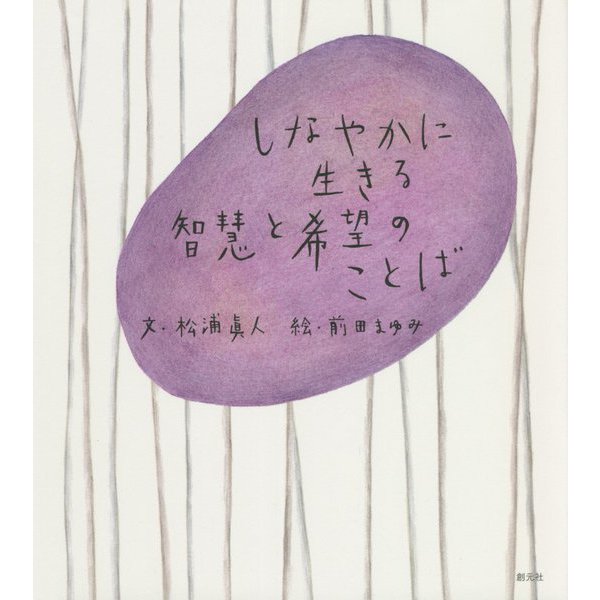 しなやかに
生きる
智慧と希望の
ことば
文・松浦眞人 絵・前田まゆみ
創元社